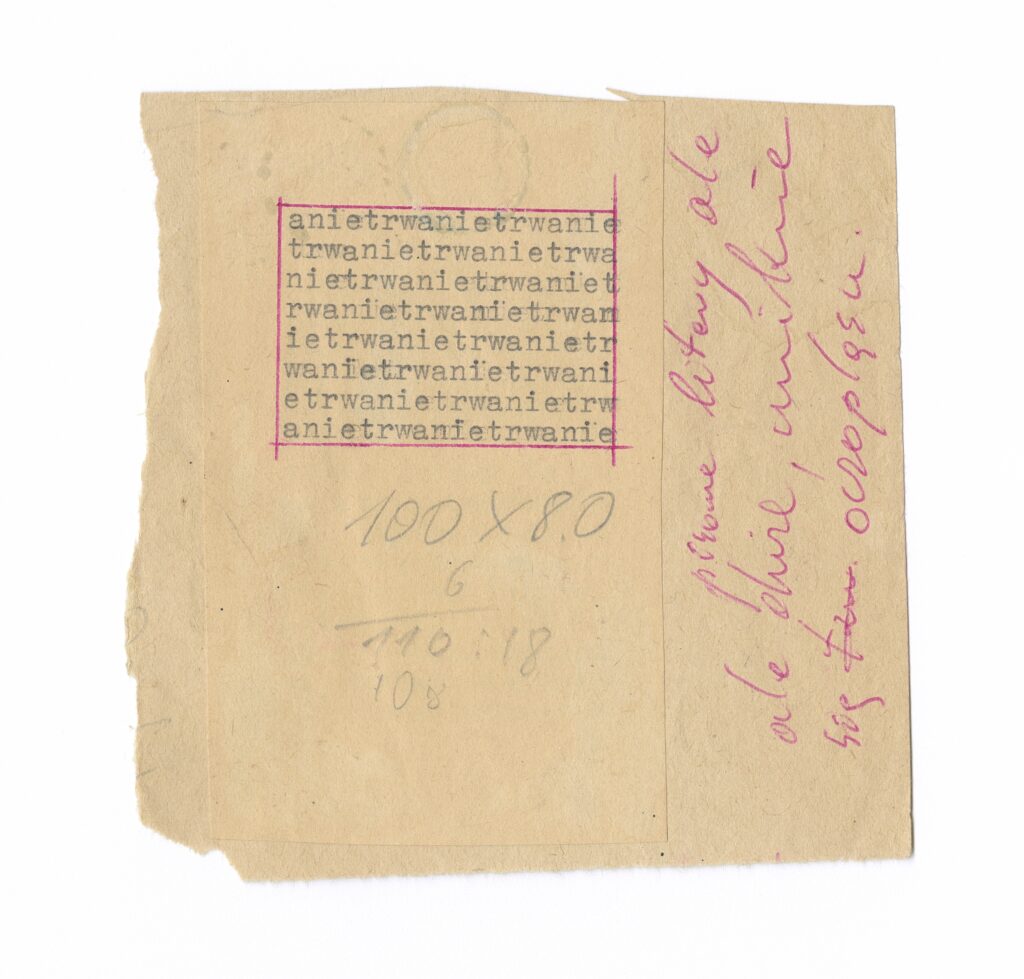 anietrwanietrwanie
trwanietrwanietrwa
nietrwanietrwaniet
rwanietrwanietrwan
ietrwanietrwanietr
wanietrwanietrwani
etrwanietrwanietrw
anietrwanietrwanie
100 X 8.0
6
110 : 18
108
pisane litery ale
ale duże, uniknie
się oczopląsu.